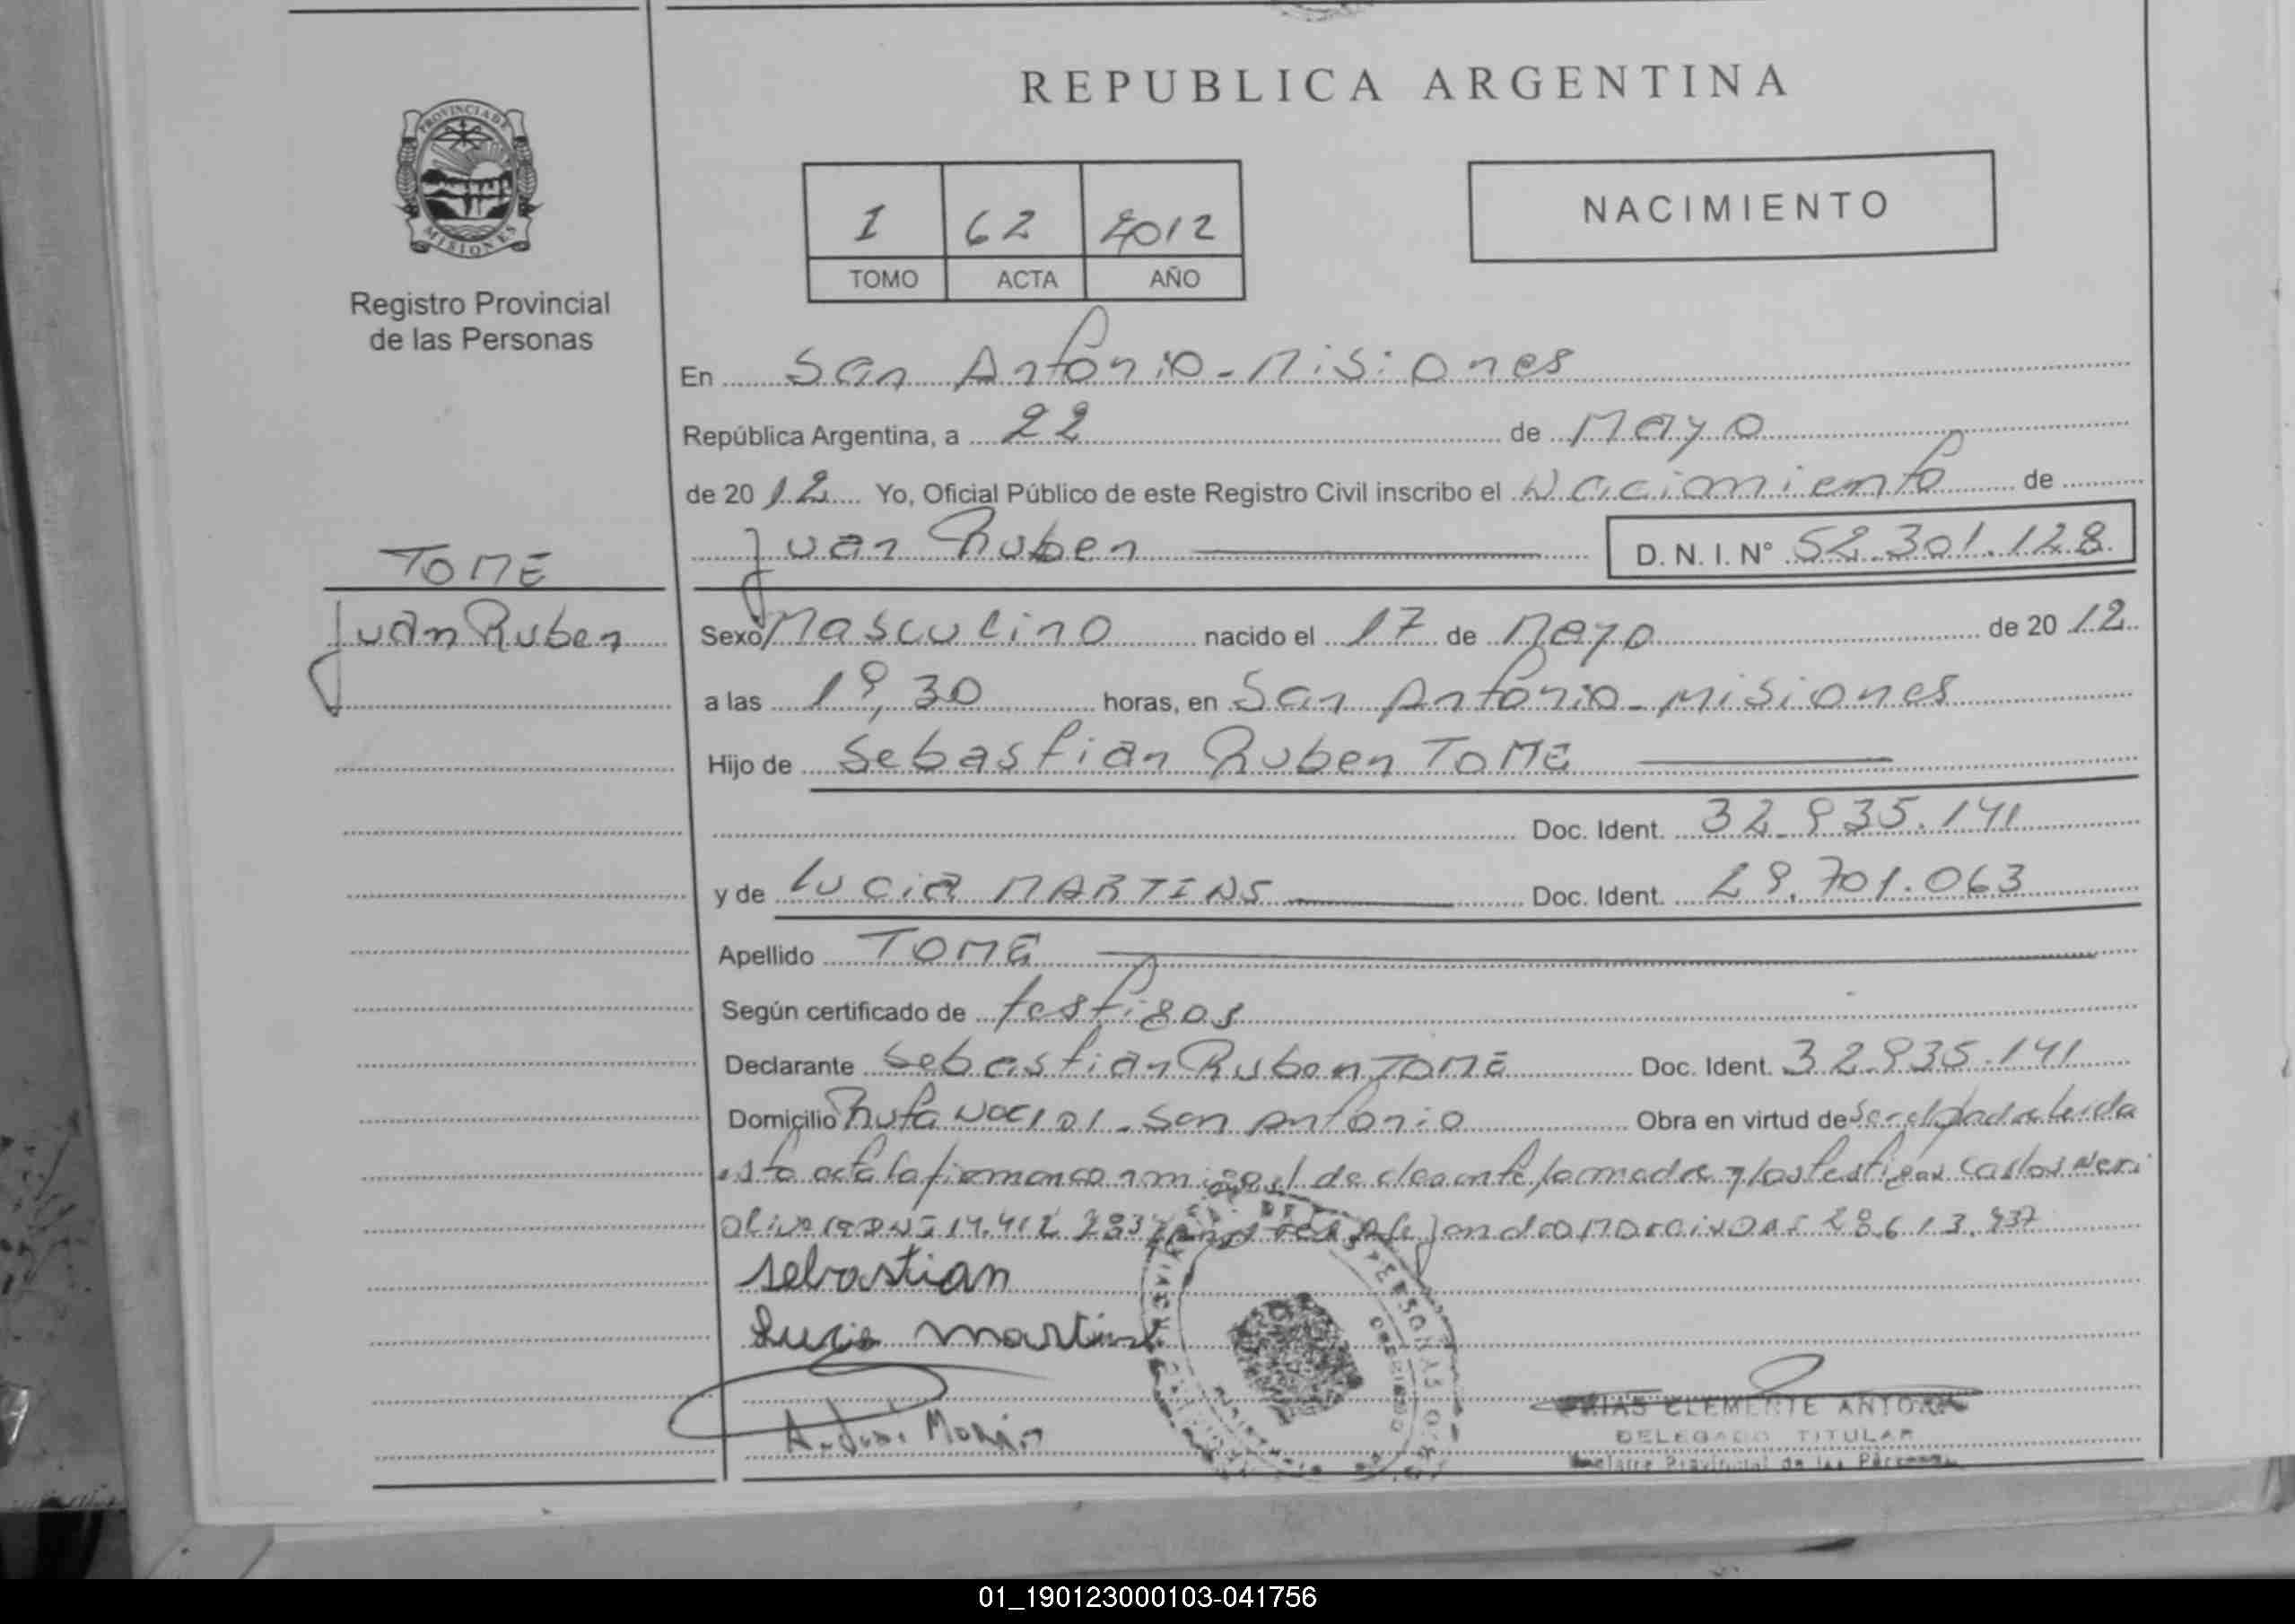 REPUBLICA ARGENTINA
PROVINCIA DE
MISIONES
Registro Provincial
de las Personas
I 62 2012
TOMO ACTA AÑO
NACIMIENTO
En San Antonio - Misiones
República Argentina, a 22 de Mayo
de 20 12 Yo, Oficial Público de este Registro Civil inscribo el Nacimiento de
Juan Ruben D. N. I. N° 52.301.128
TOME
Juan Ruben
Sexo Masculino nacido el 17 de Mayo de 20 12
a las 19,30 horas, en San Antonio - Misiones
Hijo de Sebastian Ruben TOME
Doc. Ident. 32.935.141
y de Lucia MARTINS Doc. Ident. 29.701.063
Apellido TOME
Según certificado de testigos
Declarante Sebastian Ruben TOME Doc. Ident. 32.935.141
Domicilio Ruta Nac 101 - San Antonio Obra en virtud de Ser el padre leida
esta acta la firman conmigo el la madre y los testigos Carlos Neri
DNI 14.412 DNI 28.613.937
sebastian
Lucia martins
DE LAS PERSONAS
FRIAS CLEMENTE ANTONIO
DELEGADO TITULAR
Provincial de las Personas
01_190123000103-041756